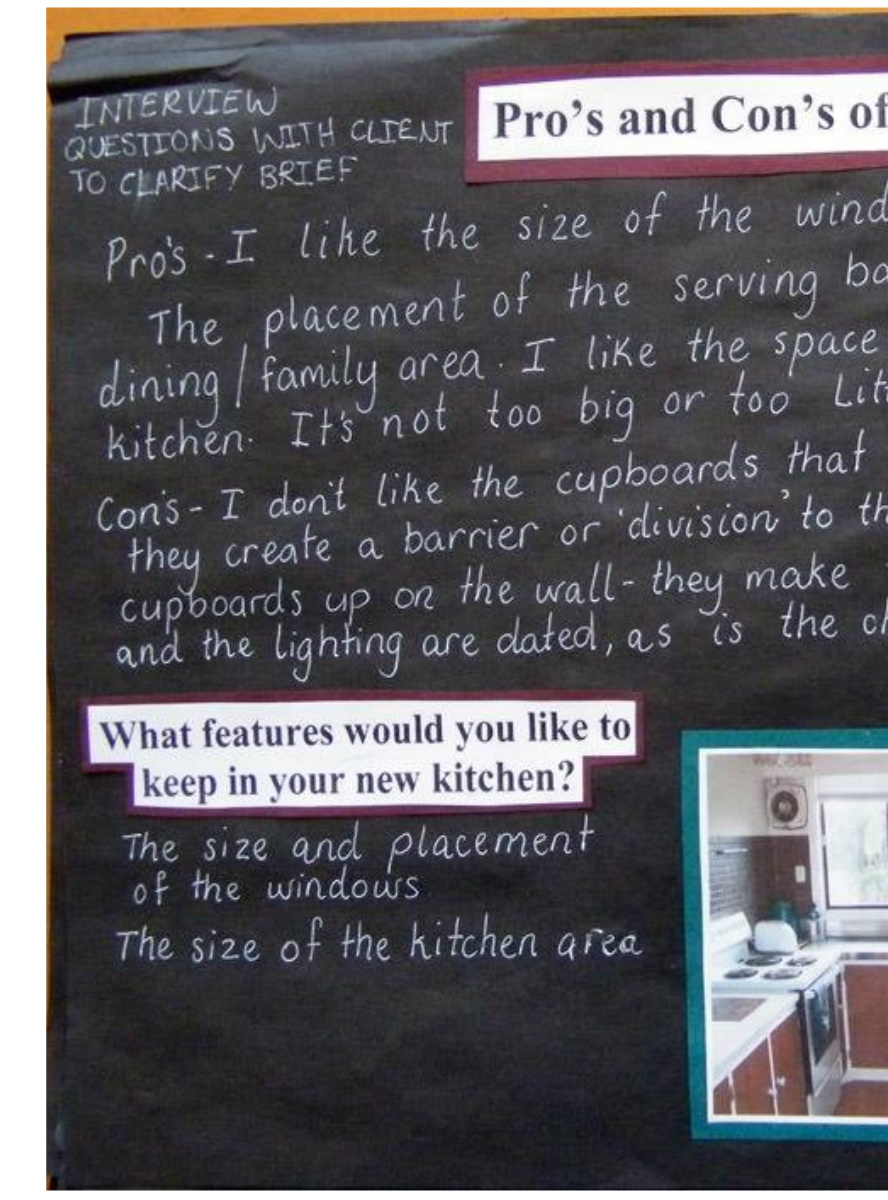 INTERVIEW
QUESTIONS WITH CLIENT
TO CLARIFY BRIEF
Pro's and Con's of
Pro's - I like the size of the wind
The placement of the serving
dining / family area. I like the space
kitchen. It's not too big or too
Con's - I don't like the cupboards that
they create a barrier or 'division' to
cupboards up on the wall - they make
and the lighting are dated, as is the
What features would you like to
keep in your new kitchen?
The size and placement
of the windows
The size of the kitchen area